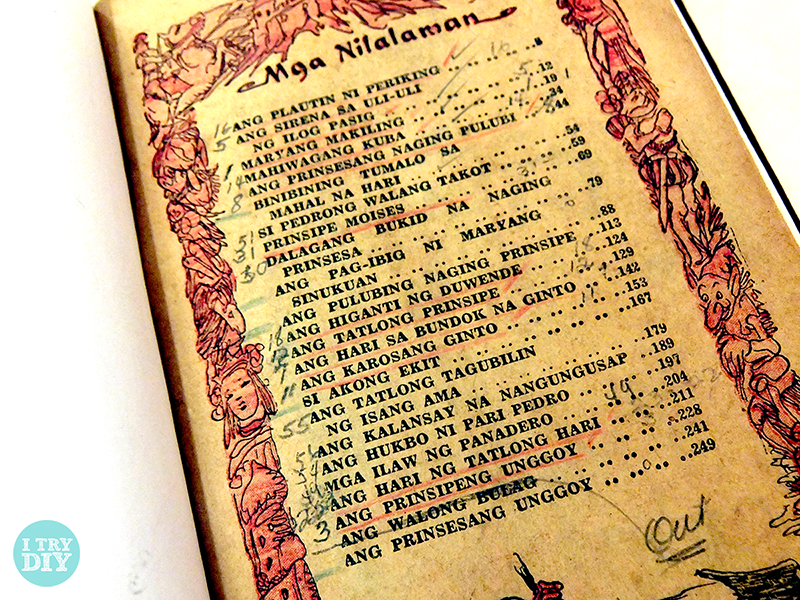 Mga Nilalaman
ANG PLAUTIN NI PERIKING .. .. .. ..8
ANG SIRENA SA ULI-ULI
NG ILOG PASIG .. .. .. .. .. ..12
MARYANG MAKILING .. .. .. .. ..19
MAHIWAGANG KUBA .. .. .. .. ..34
ANG PRINSESANG NAGING PULUBI .. ..44
BINIBINING TUMALO SA
MAHAL NA HARI .. .. .. .. .. ..54
SI PEDRONG WALANG TAKOT .. .. .. ..59
PRINSIPE MOISES .. .. .. .. .. ..69
DALAGANG BUKID NA NAGING
PRINSESA .. .. .. .. .. .. ..79
ANG PAG-IBIG NI MARYANG
SINUKUAN .. .. .. .. .. .. ..88
ANG PULUBING NAGING PRINSIPE ..113
ANG HIGANTI NG DUWENDE .. .. ..124
ANG TATLONG PRINSIPE .. .. .. ..129
ANG HARI SA BUNDOK NA GINTO ..142
ANG KAROSANG GINTO .. .. .. ..153
SI AKONG EKIT .. .. .. .. .. ..167
ANG TATLONG TAGUBILIN
NG ISANG AMA .. .. .. .. .. ..179
ANG KALANSAY NA NANGUNGUSAP ..189
ANG HUKBO NI PARI PEDRO .. .. ..197
MGA ILAW NG PANADERO .. .. .. ..204
ANG HARI NG TATLONG HARI .. .. ..211
ANG PRINSIPENG UNGGOY .. .. .. ..228
ANG WALONG BULAG .. .. .. .. ..241
ANG PRINSESANG UNGGOY .. .. .. ..249
Out
I TRY
DIY